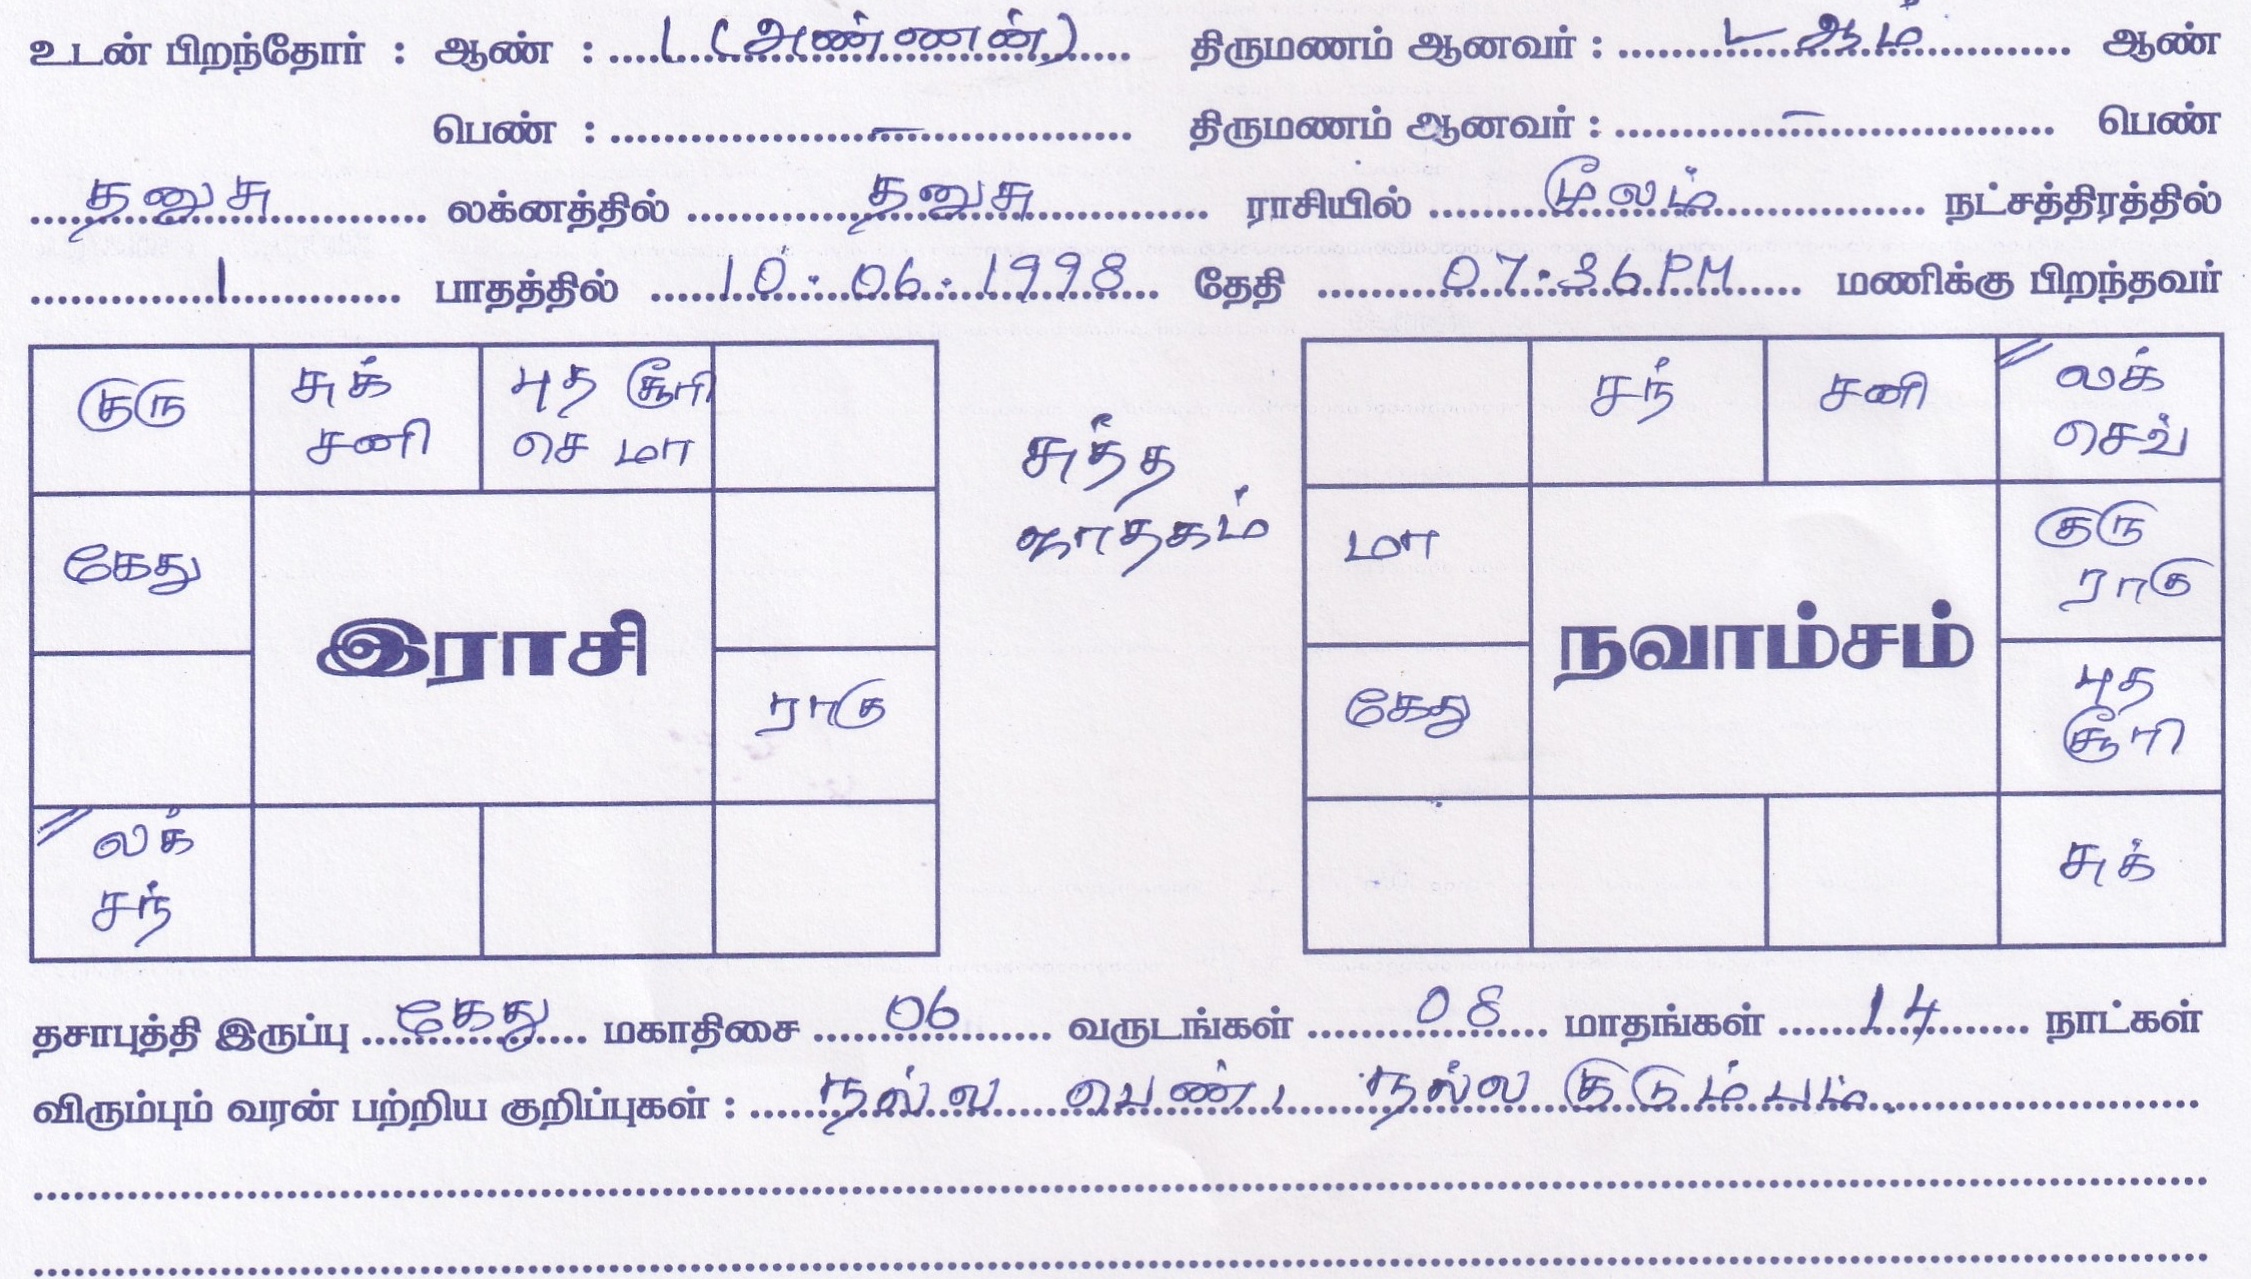 உடன் பிறந்தோர் : ஆண் : 1 (அண்ணன்) திருமணம் ஆனவர் : ஆம் ஆண்
பெண் : – திருமணம் ஆனவர் : – பெண்
தனுசு லக்னத்தில் தனுசு ராசியில் மூலம் நட்சத்திரத்தில்
1 பாதத்தில் 10.06.1998 தேதி 07.36PM மணிக்கு பிறந்தவர்
குரு
சுக்
சனி
புத சூரி
செ மா
கேது
இராசி
ராகு
லக்
சந்
சுத்த
ஜாதகம்
சந்
சனி
லக்
செவ்
மா
குரு
ராகு
நவாம்சம்
கேது
புத
சூரி
சுக்
தசாபுத்தி இருப்பு கேது மகாதிசை 06 வருடங்கள் 08 மாதங்கள் 14 நாட்கள்
விரும்பும் வரன் பற்றிய குறிப்புகள் : நல்ல பெண், நல்ல குடும்பம்.